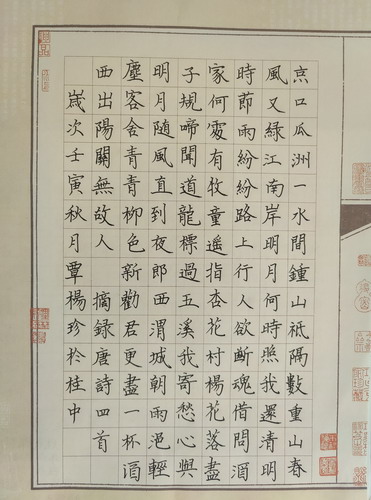 亰口瓜洲一水間鍾山祗隔數重山春
風又綠江南岸明月何時照我還清明
時節雨紛紛路上行人欲斷魂借問酒
家何處有牧童遙指杏花村楊花落盡
子規啼聞道龍標過五溪我寄愁心與
明月随風直到夜郎西渭城朝雨浥輕
塵客舍青青柳色新勸君更盡一杯酒
西出陽關無故人 摘錄唐詩四首
歲次壬寅秋月覃楊珍於桂中